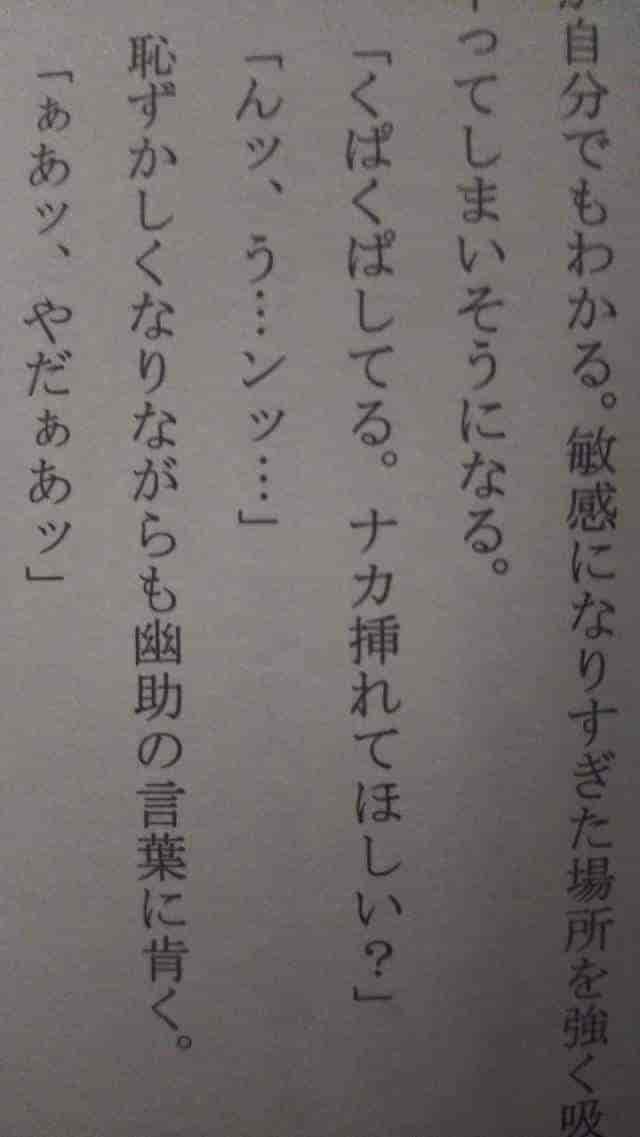 自分でもわかる。敏感になりすぎた場所を強く吸
ってしまいそうになる。
「くぱくぱしてる。ナカ挿れてほしい？」
「んッ、う…ンッ…」
恥ずかしくなりながらも幽助の言葉に肯く。
「ぁあッ、やだぁあッ」